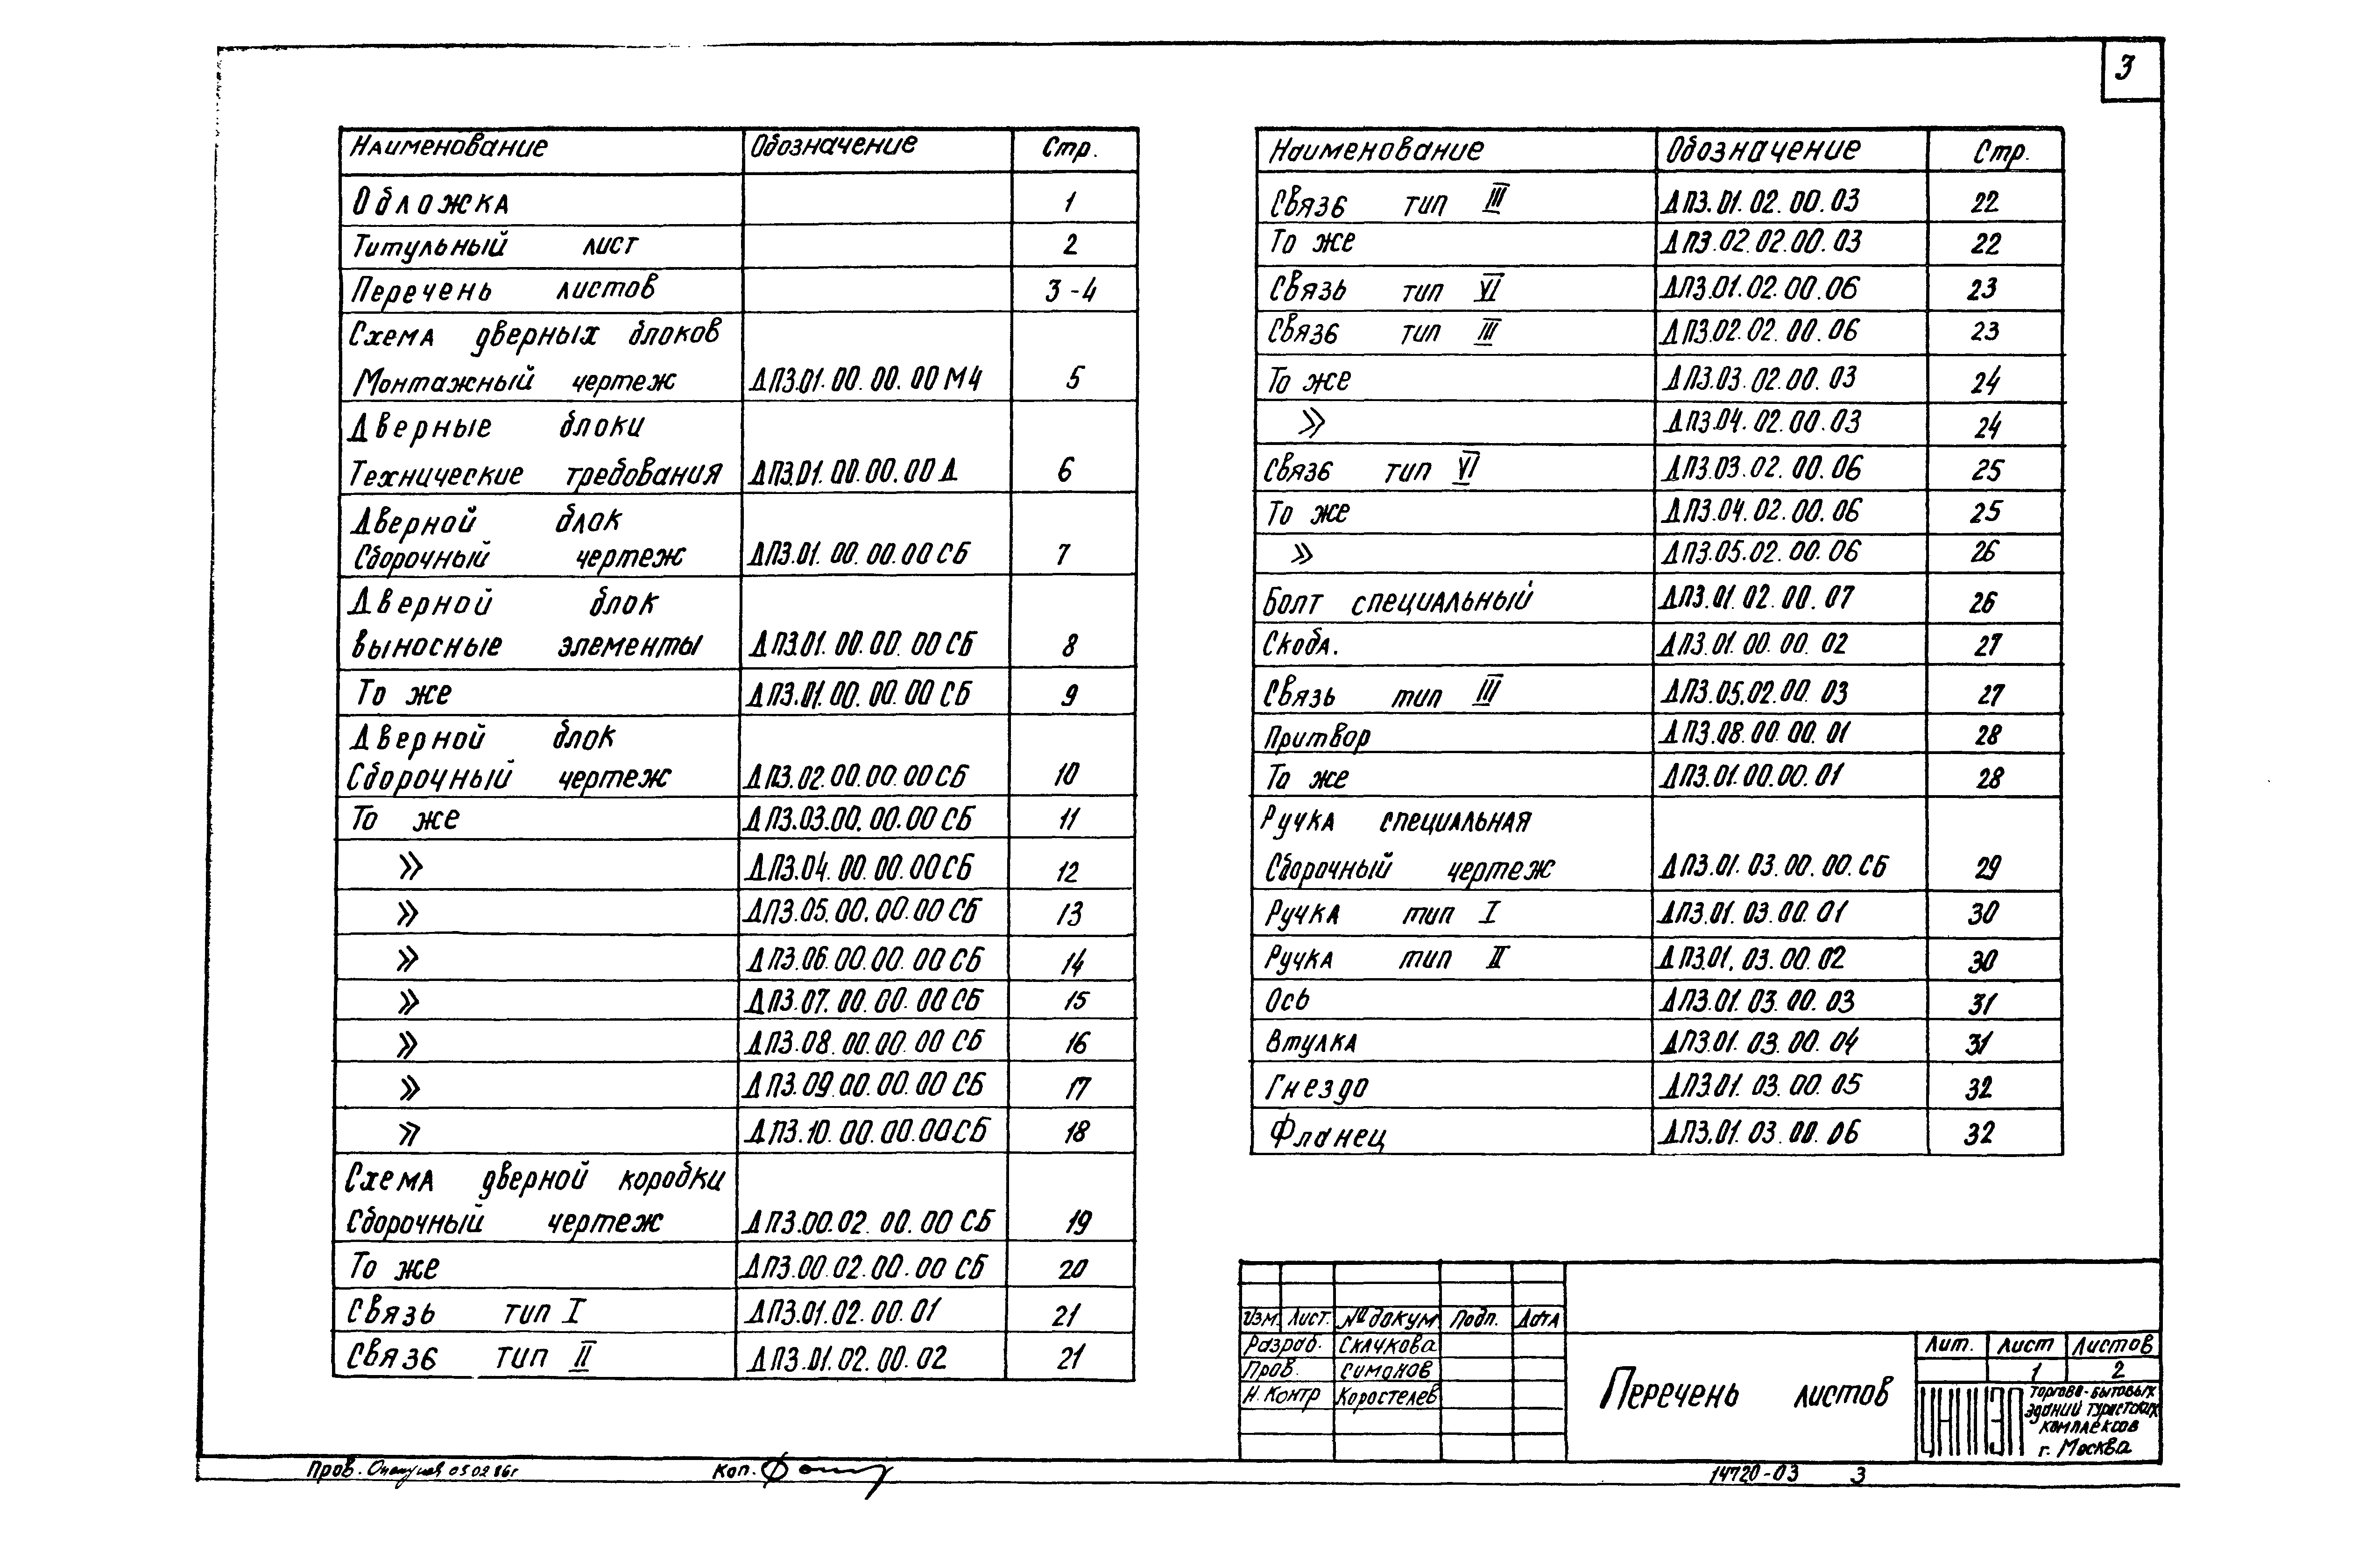 3
Наименование Обозначение Стр.
Обложка 1
Титульный лист 2
Перечень листов 3-4
Схема дверных блоков
Монтажный чертеж ДПЗ.01.00.00.00 МЧ 5
Дверные блоки
Технические требования ДПЗ.01.00.00.00 Д 6
Дверной блок
Сборочный чертеж ДПЗ.01.00.00.00 СБ 7
Дверной блок
выносные элементы ДПЗ.01.00.00.00 СБ 8
То же ДПЗ.01.00.00.00 СБ 9
Дверной блок
Сборочный чертеж ДПЗ.02.00.00.00 СБ 10
То же ДПЗ.03.00.00.00 СБ 11
» ДПЗ.04.00.00.00 СБ 12
» ДПЗ.05.00.00.00 СБ 13
» ДПЗ.06.00.00.00 СБ 14
» ДПЗ.07.00.00.00 СБ 15
» ДПЗ.08.00.00.00 СБ 16
» ДПЗ.09.00.00.00 СБ 17
» ДПЗ.10.00.00.00 СБ 18
Схема дверной коробки
Сборочный чертеж ДПЗ.00.02.00.00 СБ 19
То же ДПЗ.00.02.00.00 СБ 20
Связь тип I ДПЗ.01.02.00.01 21
Связь тип II ДПЗ.01.02.00.02 21
Наименование Обозначение Стр.
Связь тип III ДПЗ.01.02.00.03 22
То же ДПЗ.02.02.00.03 22
Связь тип VI ДПЗ.01.02.00.06 23
Связь тип III ДПЗ.02.02.00.06 23
То же ДПЗ.03.02.00.03 24
» ДПЗ.04.02.00.03 24
Связь тип VI ДПЗ.03.02.00.06 25
То же ДПЗ.04.02.00.06 25
» ДПЗ.05.02.00.06 26
Болт специальный ДПЗ.01.02.00.07 26
Скоба. ДПЗ.01.00.00.02 27
Связь тип III ДПЗ.05.02.00.03 27
Притвор ДПЗ.08.00.00.01 28
То же ДПЗ.01.00.00.01 28
Ручка специальная
Сборочный чертеж ДПЗ.01.03.00.00.СБ 29
Ручка тип I ДПЗ.01.03.00.01 30
Ручка тип II ДПЗ.01.03.00.02 30
Ось ДПЗ.01.03.00.03 31
Втулка ДПЗ.01.03.00.04 31
Гнездо ДПЗ.01.03.00.05 32
Фланец ДПЗ.01.03.00.06 32
Изм. Лист. № докум Подп. Дата
Разраб. Склчкова
Пров. Симонов
Н.Контр Коростелев
Перечень листов
Лит. Лист Листов
1 2
ЦНИИЭП торгово-бытовых
зданий туристских
комплексов
г. Москва
Пров. 05 02 86г Коп.
14720-03 3